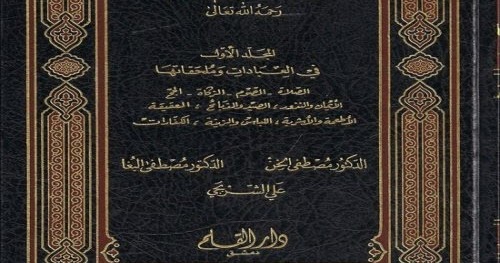 رحمه الله تعالى
المجلد الأول
في العبادات وملحقاتها
الصلاة - الصوم - الزكاة - الحج
الأيمان والنذور، الصيد والذبائح، العقيقة
الأطعمة والأشربة، اللباس والزينة، الكفارات
الدكتور مصطفى الخن الدكتور مصطفى البغا
علي الشربجي
دار القلم
دمشق